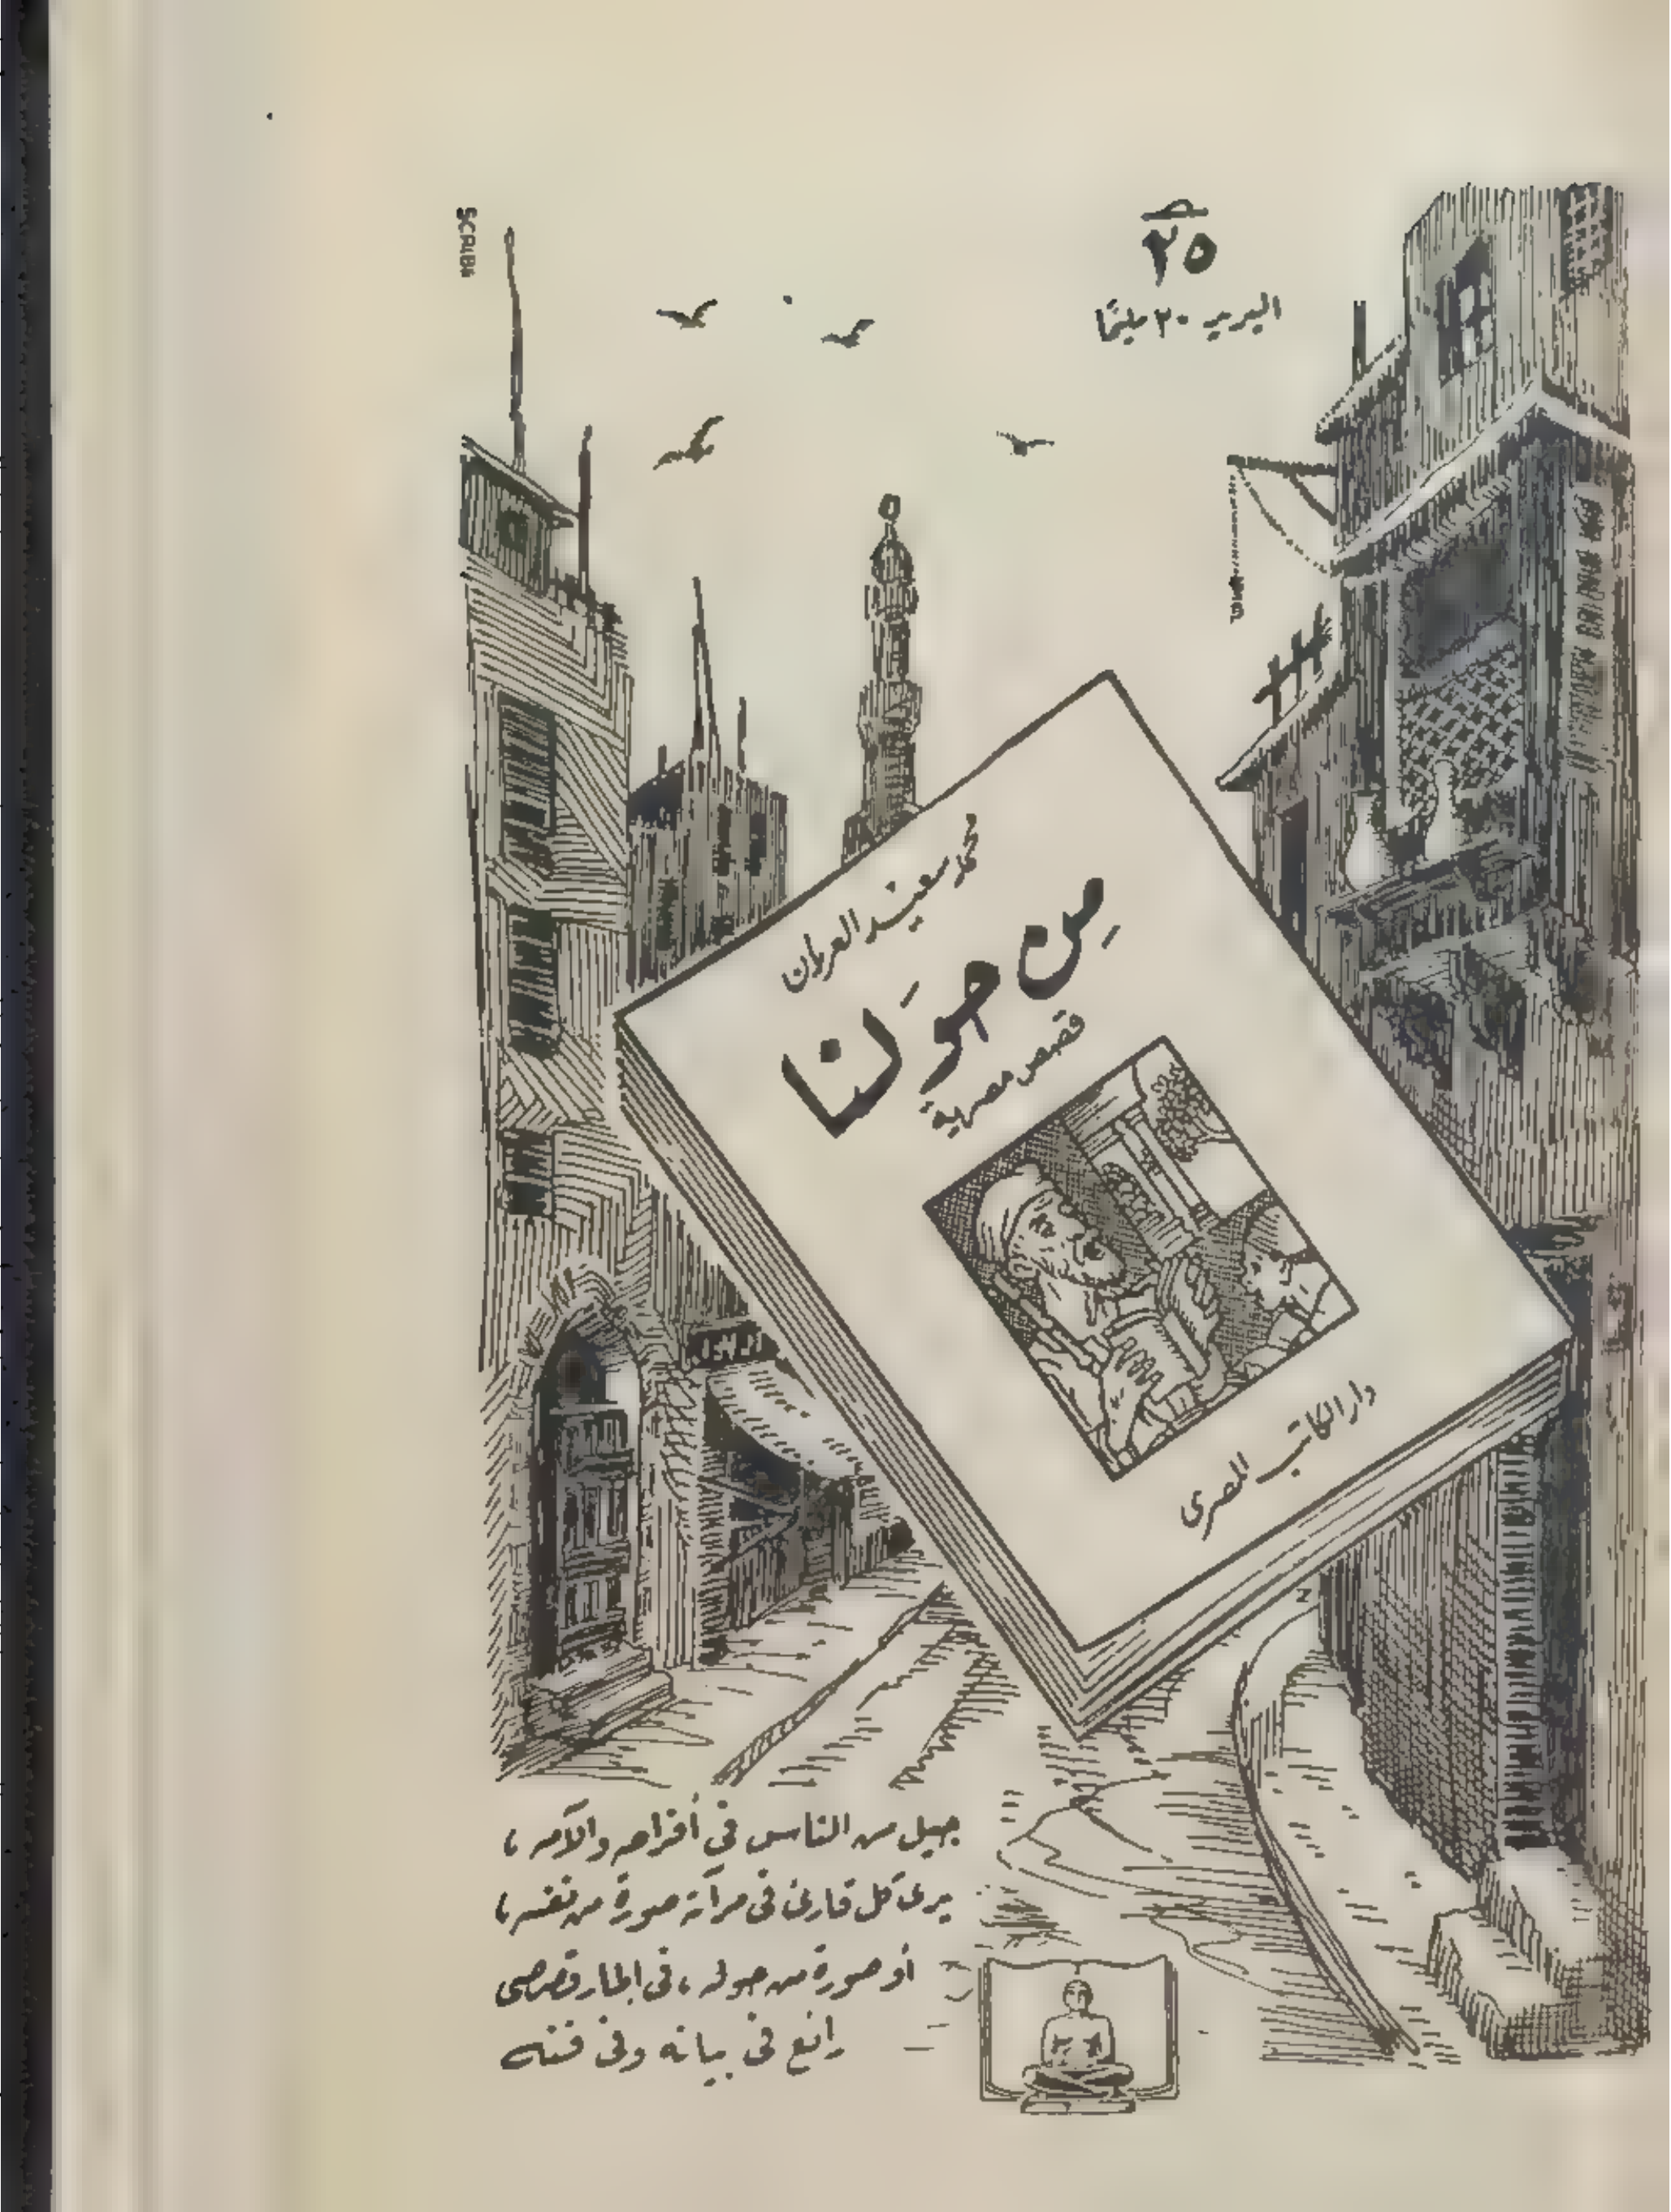 ٢٥
البريد ٢٠ مليمًا
محمد سعيد العريان
مِن حَولنا
قصص مصرية
دار الكاتب المصرى
جيل من الناس فى أفراحه وآلامه ،
يرى كل قارئ فى مرآته صورة من نفسه ،
أو صورة من حوله ، فى إطار قصصى
رائع فى بيانه وفى فنه